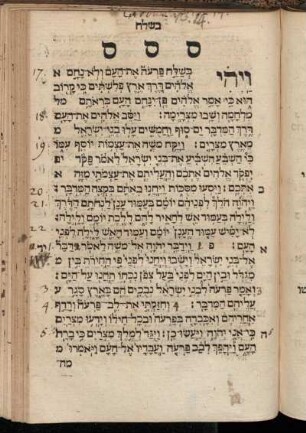 בשלח
ס ס ס
17. ויהי בשלח פרעה את העם ולא נחם א
אלהים דרך ארץ פלשתים כי קרוב
הוא כי אמר אלהים פן ינחם העם בראתם
18. מלחמה ושבו מצרימה: ויסב אלהים את העם
דרך המדבר ים סוף וחמשים עלו בני ישראל
19. מארץ מצרים: ויקח משה את עצמות יוסף עמו
כי השבע השביע את בני ישראל לאמר פקד
יפקד אלהים אתכם והעליתם את עצמתי מזה
20. אתכם: ויסעו מסכת ויחנו באתם בקצה המדבר: ב
21. ויהוה הלך לפניהם יומם בעמוד ענן לנחתם הדרך
ולילה בעמוד אש להאיר להם ללכת יומם ולילה:
22. לא ימיש עמוד הענן יומם ועמוד האש לילה לפני
העם: פ וידבר יהוה אל משה לאמר: דבר א
אל בני ישראל וישבו ויחנו לפני פי החירת בין
מגדל ובין הים לפני בעל צפן נכחו תחנו על הים:
3 ואמר פרעה לבני ישראל נבכים הם בארץ סגר
עליהם המדבר: 4 וחזקתי את לב פרעה ורדף
אחריהם ואכבדה בפרעה ובכל חילו וידעו מצרים
5. כי אני יהוה ויעשו כן: ויגד למלך מצרים כי ברח ה
העם ויהפך לבב פרעה ועבדיו אל העם ויאמרו
מה